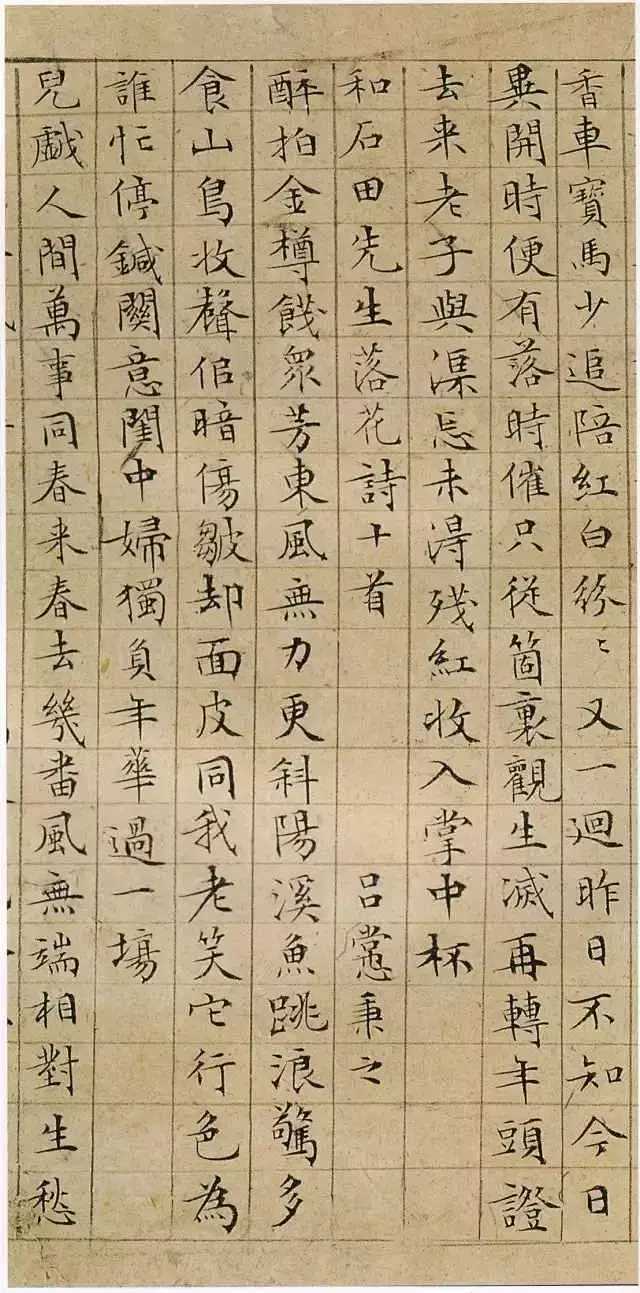 香車寶馬少追陪紅白紛〻又一迴昨日不知今日
異開時便有落時催只從箇裏觀生滅再轉年頭證
去来老子與渠忘未得殘紅收入掌中杯
和石田先生落花詩十首 呂㦂秉之
醉拍金樽餞眾芳東風無力更斜陽溪魚跳浪驚多
食山鳥收聲佀暗傷皺却面皮同我老笑它行色為
誰忙停鍼關意閨中婦獨負年華過一場
兒戲人間萬事同春来春去幾番風無端相對生愁